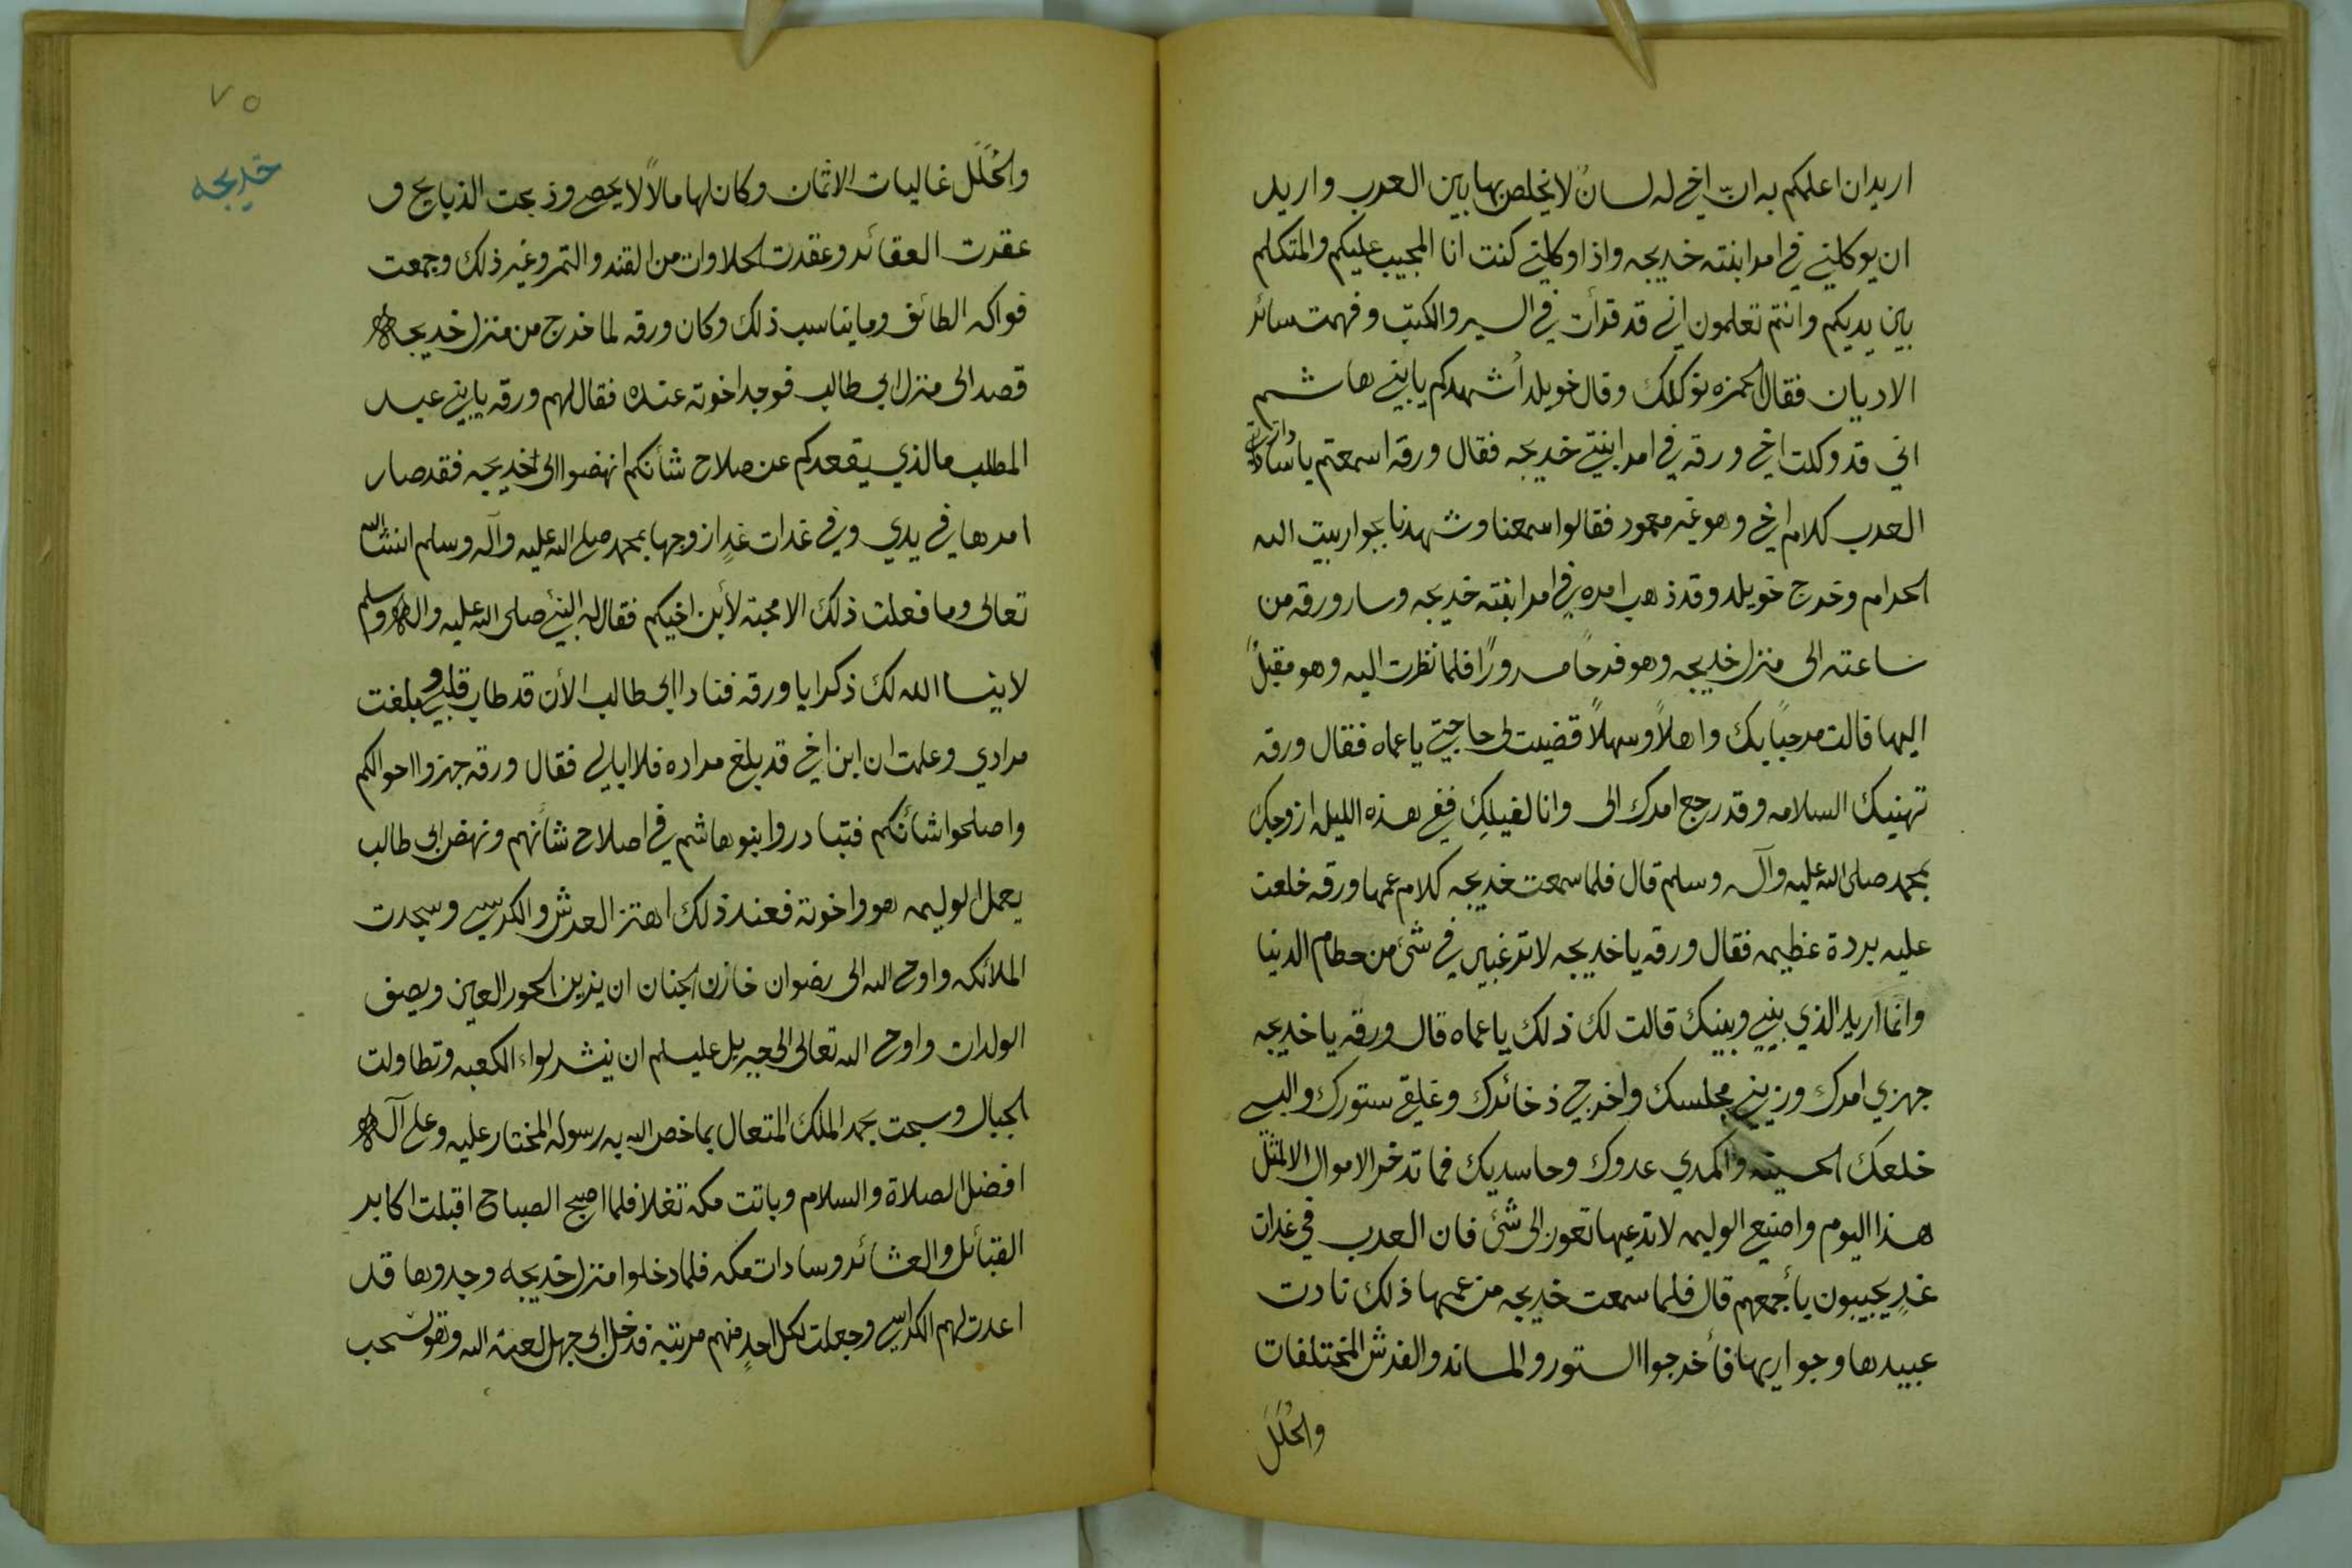 اريد ان اعلمكم به ان اخي له لسانٌ لا يخلص بها بين العرب واريد
ان يوكلني في امر ابنته خديجه واذا وكلني كنت انا المجيب عليكم والمتكلم
بين يديكم وانتم تعلمون اني قد قرأت في السير والكتب وفهمت سائر
الاديان فقال الحمزه نوكلك وقال خويلد أشهدكم يا بني هاشم
اني قد وكلت اخي ورقه في امر ابنتي خديجه فقال ورقه اسمعتم يا سادات
العرب كلام اخي وهو غير مجبور فقالوا سمعنا وشهدنا بجوار بيت الله
الحرام وخرج خويلد وقد ذهب امره في امر ابنته خديجه وسار ورقه من
ساعته الى منزل خديجه وهو فرحًا مسرورًا فلما نظرت اليه وهو مقبلً
اليها قالت مرحبًا بك واهلاً وسهلاً قضيت لي حاجتي يا عماه فقال ورقه
تهنيك السلامه وقد رجع امرك الى وانا لفيلكِ ففي هذه الليله ازوجك
بمحمد صلى الله عليه وآله وسلم قال فلما سمعت خديجه كلام عمها ورقه خلعت
عليه بردة عظيمه فقال ورقه يا خديجه لا ترغبيني في شئ من حطام الدنيا
وانما اريد الذي بيني وبينك قالت لك ذلك يا عماه قال ورقه يا خديجه
جهزي امرك وزيني مجلسك واخرجي ذخائرك وعلقي ستورك والبسي
خلعك الحسينه واكمدي عدوك وحاسديك فما تدخر الاموال الا لمثل
هذا اليوم واصنعي الوليمه لا تدعيها تعوز الى شئ فان العرب في غدات
غدٍ يجيبون بأجمعهم قال فلما سمعت خديجه من عمها ذلك نادت
عبيدها وجواريها فأخرجوا الستور والمساند والفرش المختلفات
والحُلَل
٧٥
خديجه
والحُلَل غاليات الاثمان وكان لها مالاً لا يحصى وذبحت الذبايح و
عقدت العقائد وعقدت الحلاوات من القند والتمر وغير ذلك وجمعت
فواكه الطائف وما يناسب ذلك وكان ورقه لما خرج من منزل خديجه
قصد الى منزل ابي طالب فوجد اخوته عنده فقال لهم ورقه يا بني عبد
المطلب ما الذي يقعدكم عن صلاح شأنكم انهضوا الى خديجه فقد صار
امرها في يدي وفي غدات غدٍ ازوجها بمحمد صلى الله عليه وآله وسلم انشاالله
تعالى وما فعلت ذلك الا محبة لأبن اخيكم فقال له النبي صلى الله عليه واله وسلم
لا ينسا الله لك ذكرا يا ورقه فنادا ابي طالب الأن قد طاب قلبي وبلغت
مرادي وعلمت ان ابن اخي قد بلغ مراده فلا ابالي فقال ورقه جهزوا احوالكم
واصلحوا شأنكم فتبادروا بنو هاشم في اصلاح شأنهم ونهض ابي طالب
يعمل الوليمه هو واخوته فعند ذلك اهتز العرش والكرسي وسجدت
الملائكه واوحى الله الى رضوان خازن الجنان ان يزين الحور العين ويصف
الولدان واوحى الله تعالى الى جبريل عليه السلم ان ينشر لواء الكعبه وتطاولت
الجبال وسبحت بحمد الملك المتعال بما خص الله به رسوله المختار عليه وعلى آله
افضل الصلاة والسلام وباتت مكه تغلا فلما اصبح الصباح اقبلت اكابر
القبائل والعشائر وسادات مكه فلما دخلوا منزل خديجه وجدوها قد
اعدت لهم الكراسي وجعلت لكل احدٍ منهم مرتبة فدخل ابي جهل لعنه الله وهو يسحب